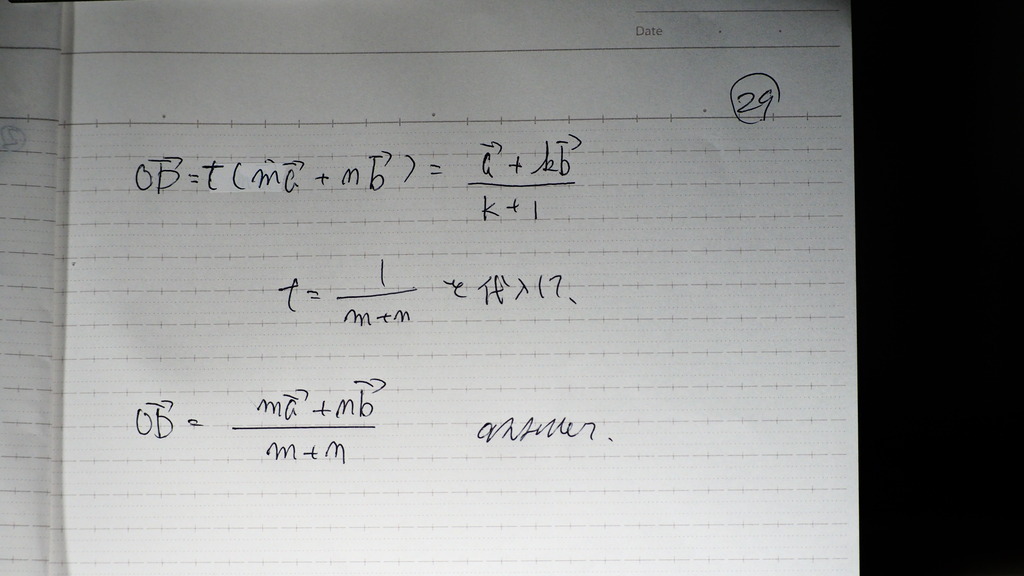 Date
29
OD = t(ma + nb) = (a + kb) / (k + 1)
t = 1 / (m+n) を代入して、
OD = (ma + nb) / (m + n) answer.